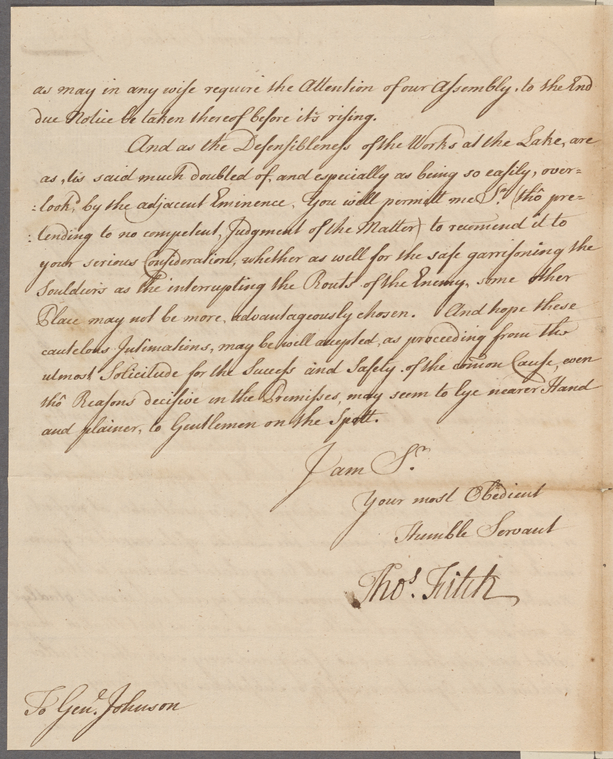 as may in any wise require the Attention of our Assembly, to the End
due Notice be taken thereof before it's rising.
And as the Defensibleness of the Works at the Lake, are
as, tis said much doubted of, and especially as being so easily, over=
=look'd by the adjacent Eminence. You will permitt me Sr. (tho' pre=
=tending to no competent, Judgment of the Matter) to recomend it to
your serious Consideration, whether as well for the safe garrisoning the
Souldiers as the interrupting the Routs of the Enemy, some other
Place may not be more, advantageously chosen. And hope these
cautelous Intimations, may be well accepted, as proceeding from the
utmost Solicitude for the Success and Safety of the comon Cause, even
tho' Reasons decisive in the Premisses, may seem to lye nearer Hand
and plainer, to Gentlemen on the Spott.
I am Sr.
Your most Obedient
Humble Servant
Thos. Fitch
To Genl. Johnson